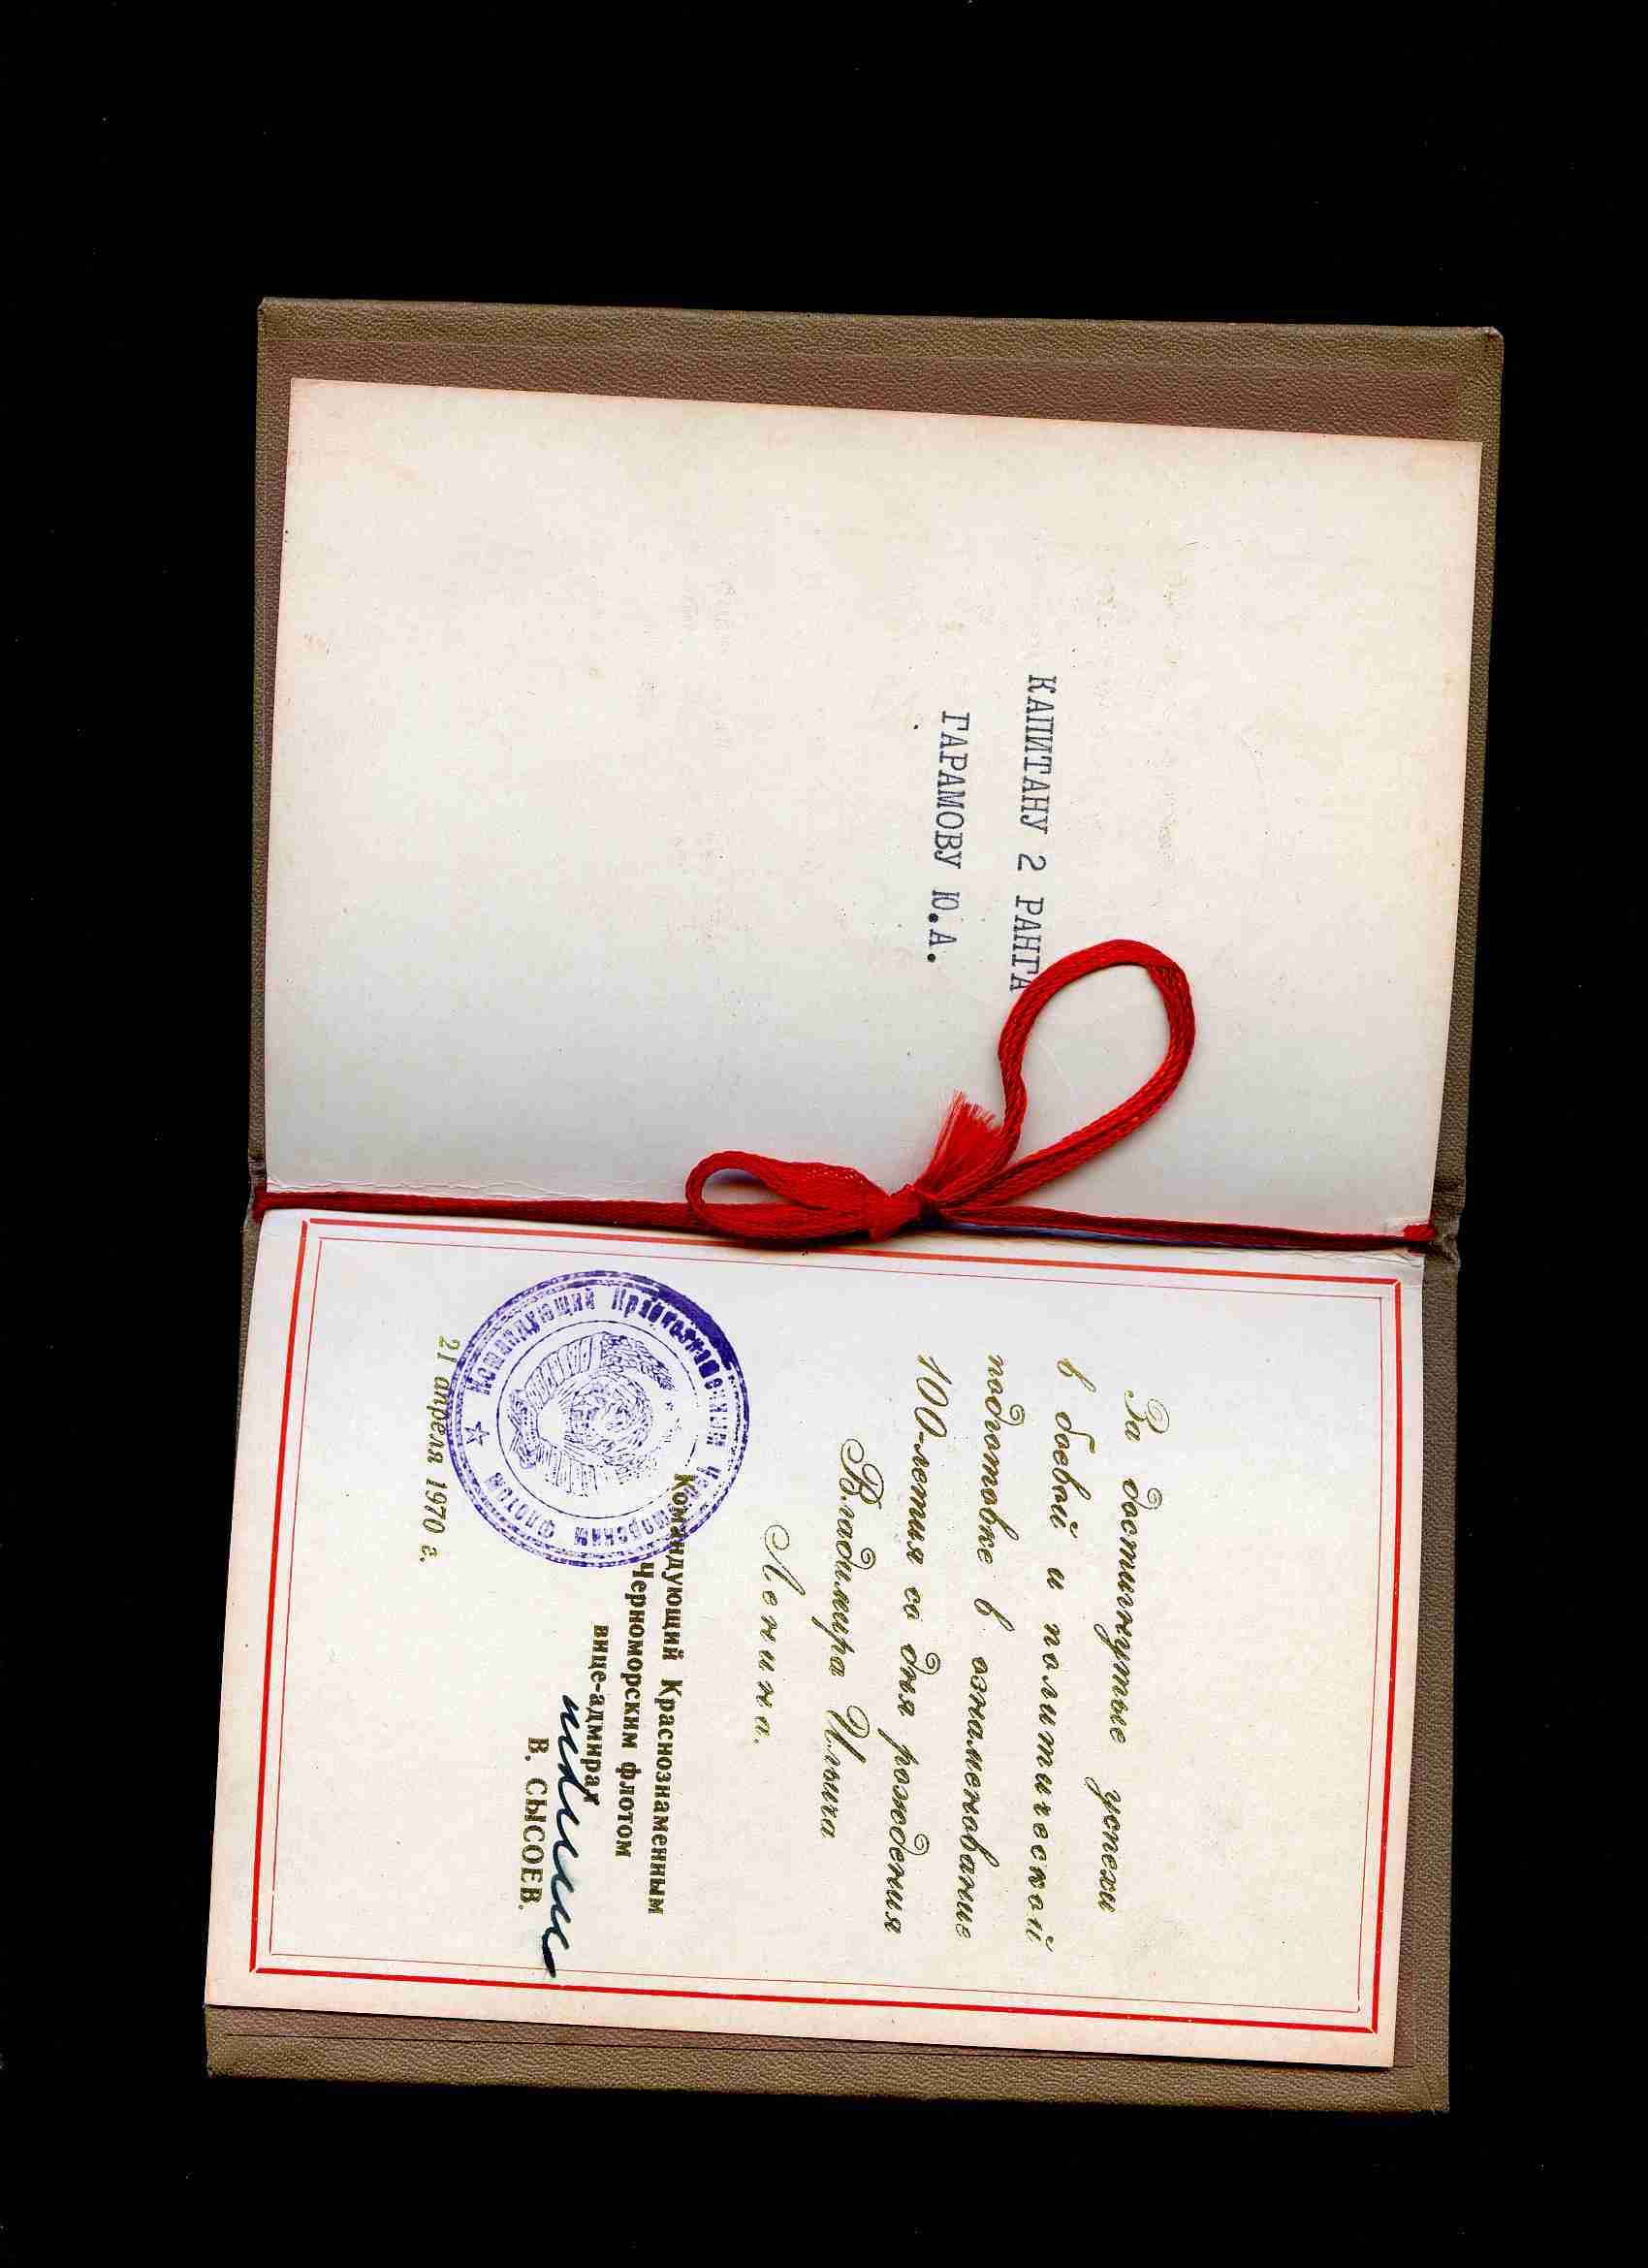 КАПИТАНУ 2 РАНГА
ГАРАМОВУ Ю.А.
За достигнутые успехи
в боевой и политической
подготовке в ознаменование
100-летия со дня рождения
Владимира Ильича
Ленина.
Командующий Краснознаменным
Черноморским флотом
вице-адмирал
В. СЫСОЕВ.
Командующий Краснознаменным Черноморским флотом
21 апреля 1970 г.